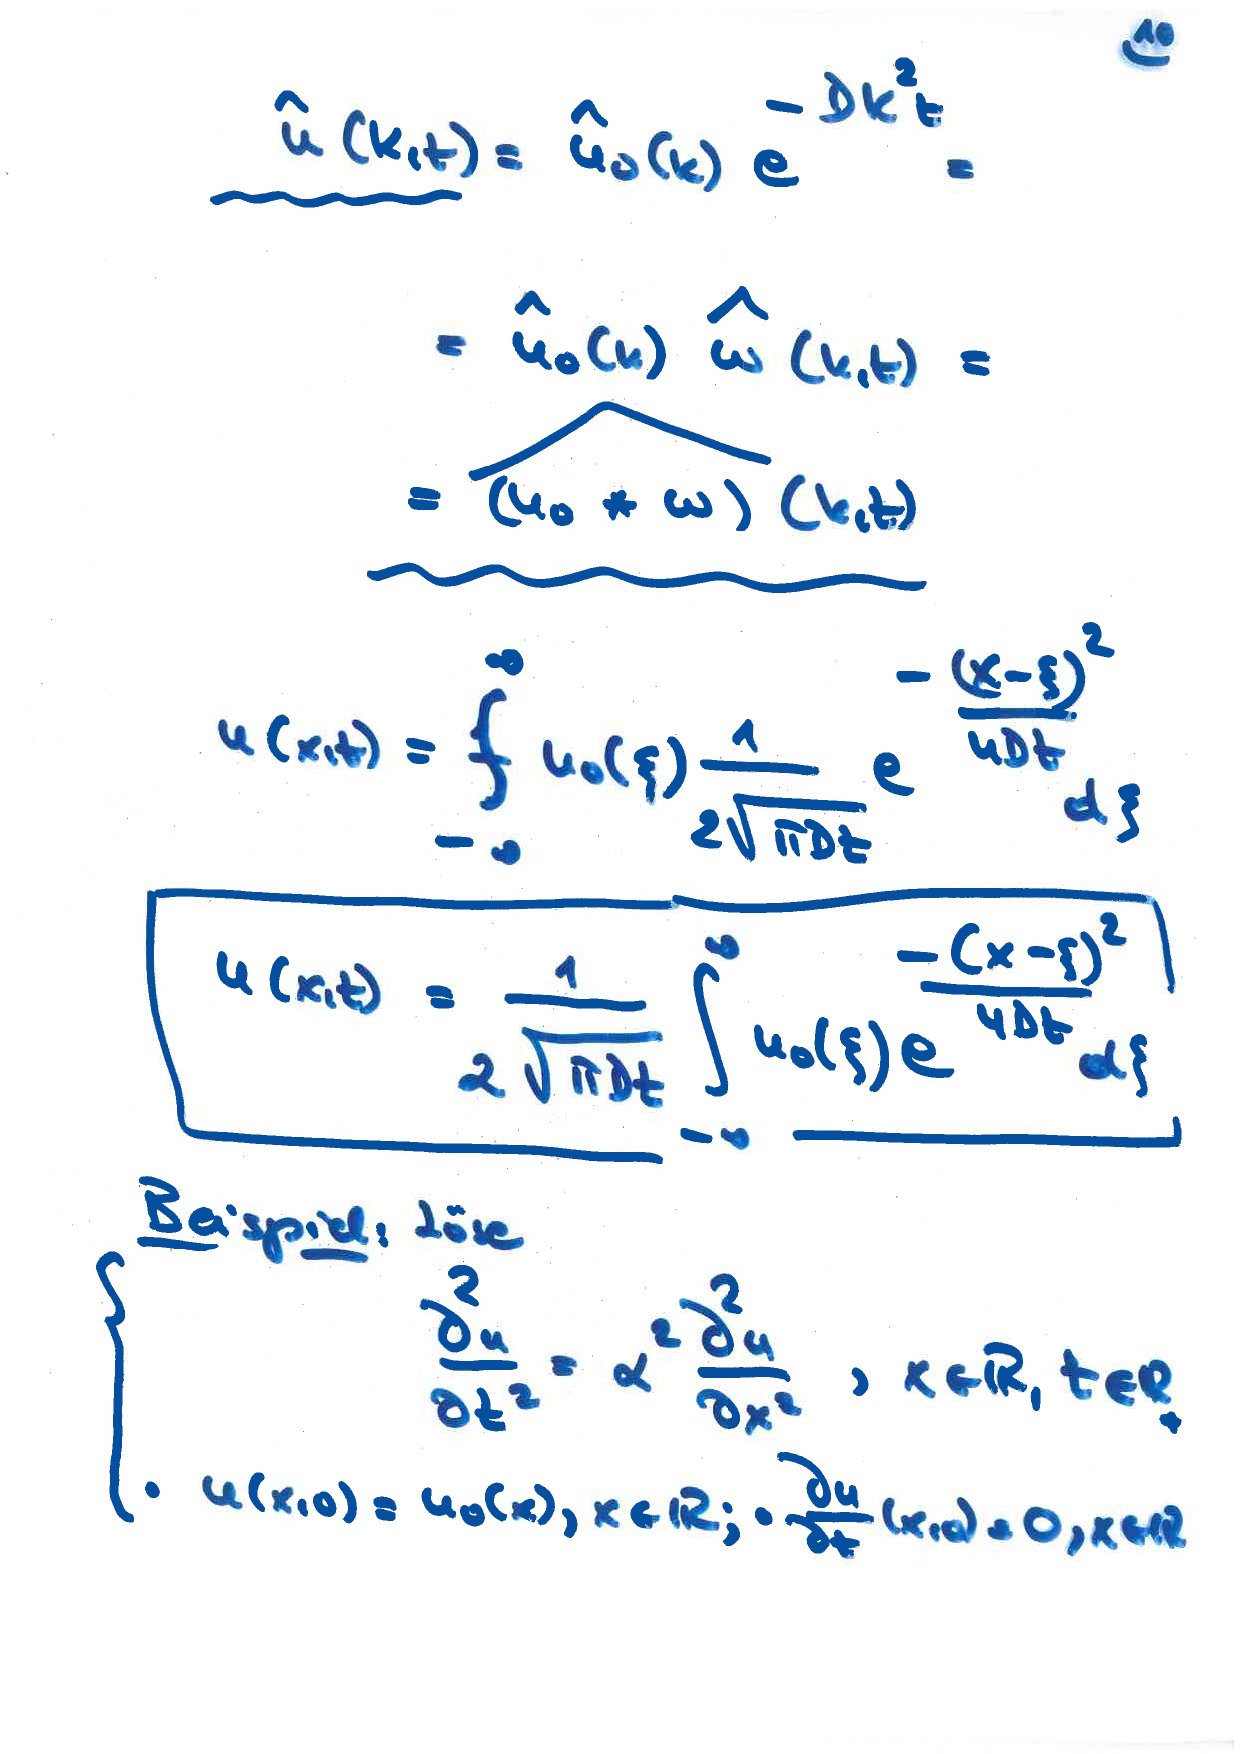 10
û(k,t) = û₀(k) e^{-Dk²t} =
= û₀(k) ŵ(k,t) =
= \widehat{(u₀ * w)}(k,t)
u(x,t) = ∫_{-∞}^{∞} u₀(ξ) \frac{1}{2√(πDt)} e^{-\frac{(x-ξ)²}{4Dt}} dξ
u(x,t) = \frac{1}{2√(πDt)} ∫_{-∞}^{∞} u₀(ξ) e^{-\frac{(x-ξ)²}{4Dt}} dξ
Beispiel: Löse
\frac{∂²u}{∂t²} = α² \frac{∂²u}{∂x²} , x∈ℝ, t∈ℝ₊
• u(x,0) = u₀(x), x∈ℝ; • \frac{∂u}{∂t}(x,0) = 0, x∈ℝ